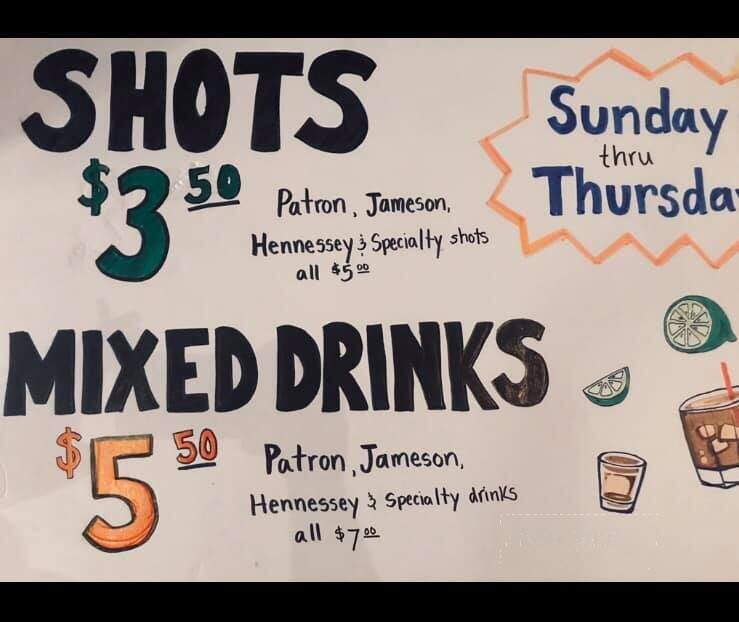 SHOTS
$3 50
Patron, Jameson,
Hennessey & Specialty shots
all $5 00
Sunday
thru
Thursda
MIXED DRINKS
$5 50
Patron, Jameson,
Hennessey & Specialty drinks
all $7 00